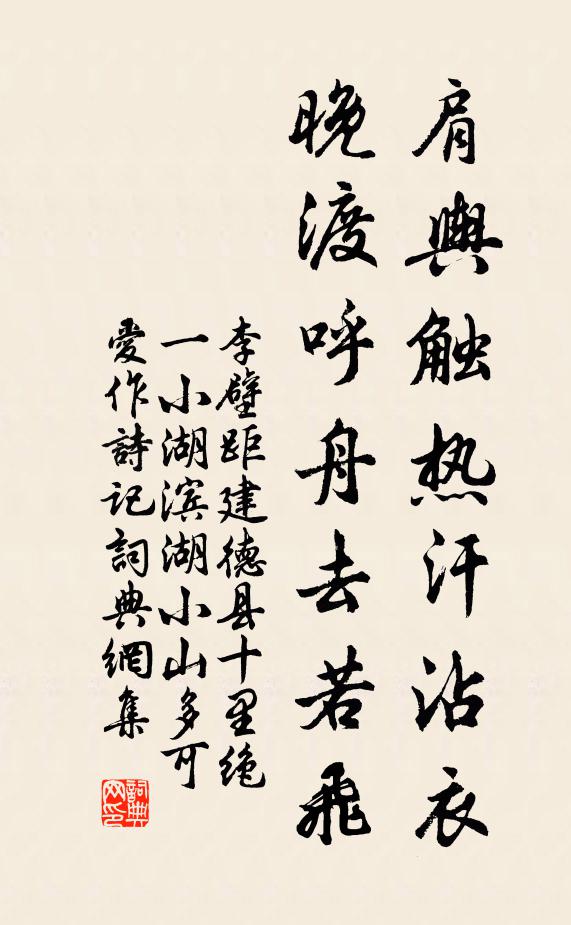 肩輿触热汗沾衣
晚渡呼舟去若飛
李壁距建德县十里绝
一小湖滨湖小山多可
愛作詩记詞典網集
詞典
网印